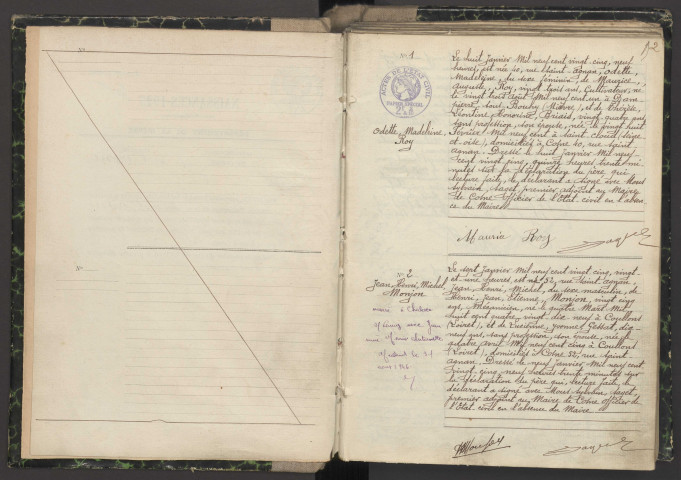 N°
N°
1-2
N° 1
ACTES DE L'ETAT CIVIL
PAPIER SPECIAL
Odette, Madeleine
Roy
Le huit Janvier Mil neuf cent vingt-cinq, neuf
heures, est née 40, rue Saint-Agnan, Odette,
Madeleine, du sexe féminin, de Maurice,
Auguste, Roy, vingt trois ans, Cultivateur, né
le vingt trois Août Mil neuf cent un à Dam-
pierre sous Bouhy (Nièvre), et de Thérèse,
Léontine, Honorine, vingt quatre ans,
sans profession, son épouse, née le vingt huit
Février Mil neuf cent à Saint-Cloud (Seine
et Oise), domiciliés à Cosne 40, rue Saint
Agnan. Dressé le huit Janvier Mil neuf
cent vingt cinq, quinze heures trente mi-
nutes sur la déclaration du père qui,
lecture faite, le déclarant a signé avec Nous
Sylvain, Saget, premier adjoint au Maire
de Cosne Officier de l'Etat civil en l'absen-
ce du Maire
Maurice Roy
N° 2
Jean, Henri, Michel,
Monjon
marié à
Le sept Janvier Mil neuf cent vingt cinq, vingt
et une heures, est né 52, rue Saint Agnan,
Jean, Henri, Michel, du sexe masculin, de
Henri, Jean, Etienne, Monjon, vingt cinq
ans, Mécanicien, né le quatre Mars Mil
huit cent quatre-vingt-dix-neuf à Coullons
(Loiret), et de Yvonne, dix
neuf ans, sans profession, son épouse, née le
quatre Avril Mil neuf cent cinq à Coullons
(Loiret), domiciliés à Cosne 52, rue Saint
Agnan. Dressé le neuf Janvier Mil neuf cent
vingt-cinq, neuf heures trente minutes sur
la déclaration du père qui, lecture faite, le
déclarant a signé avec Nous Sylvain, Saget,
premier adjoint au Maire de Cosne Officier de
l'Etat civil en l'absence du Maire
HMonjon